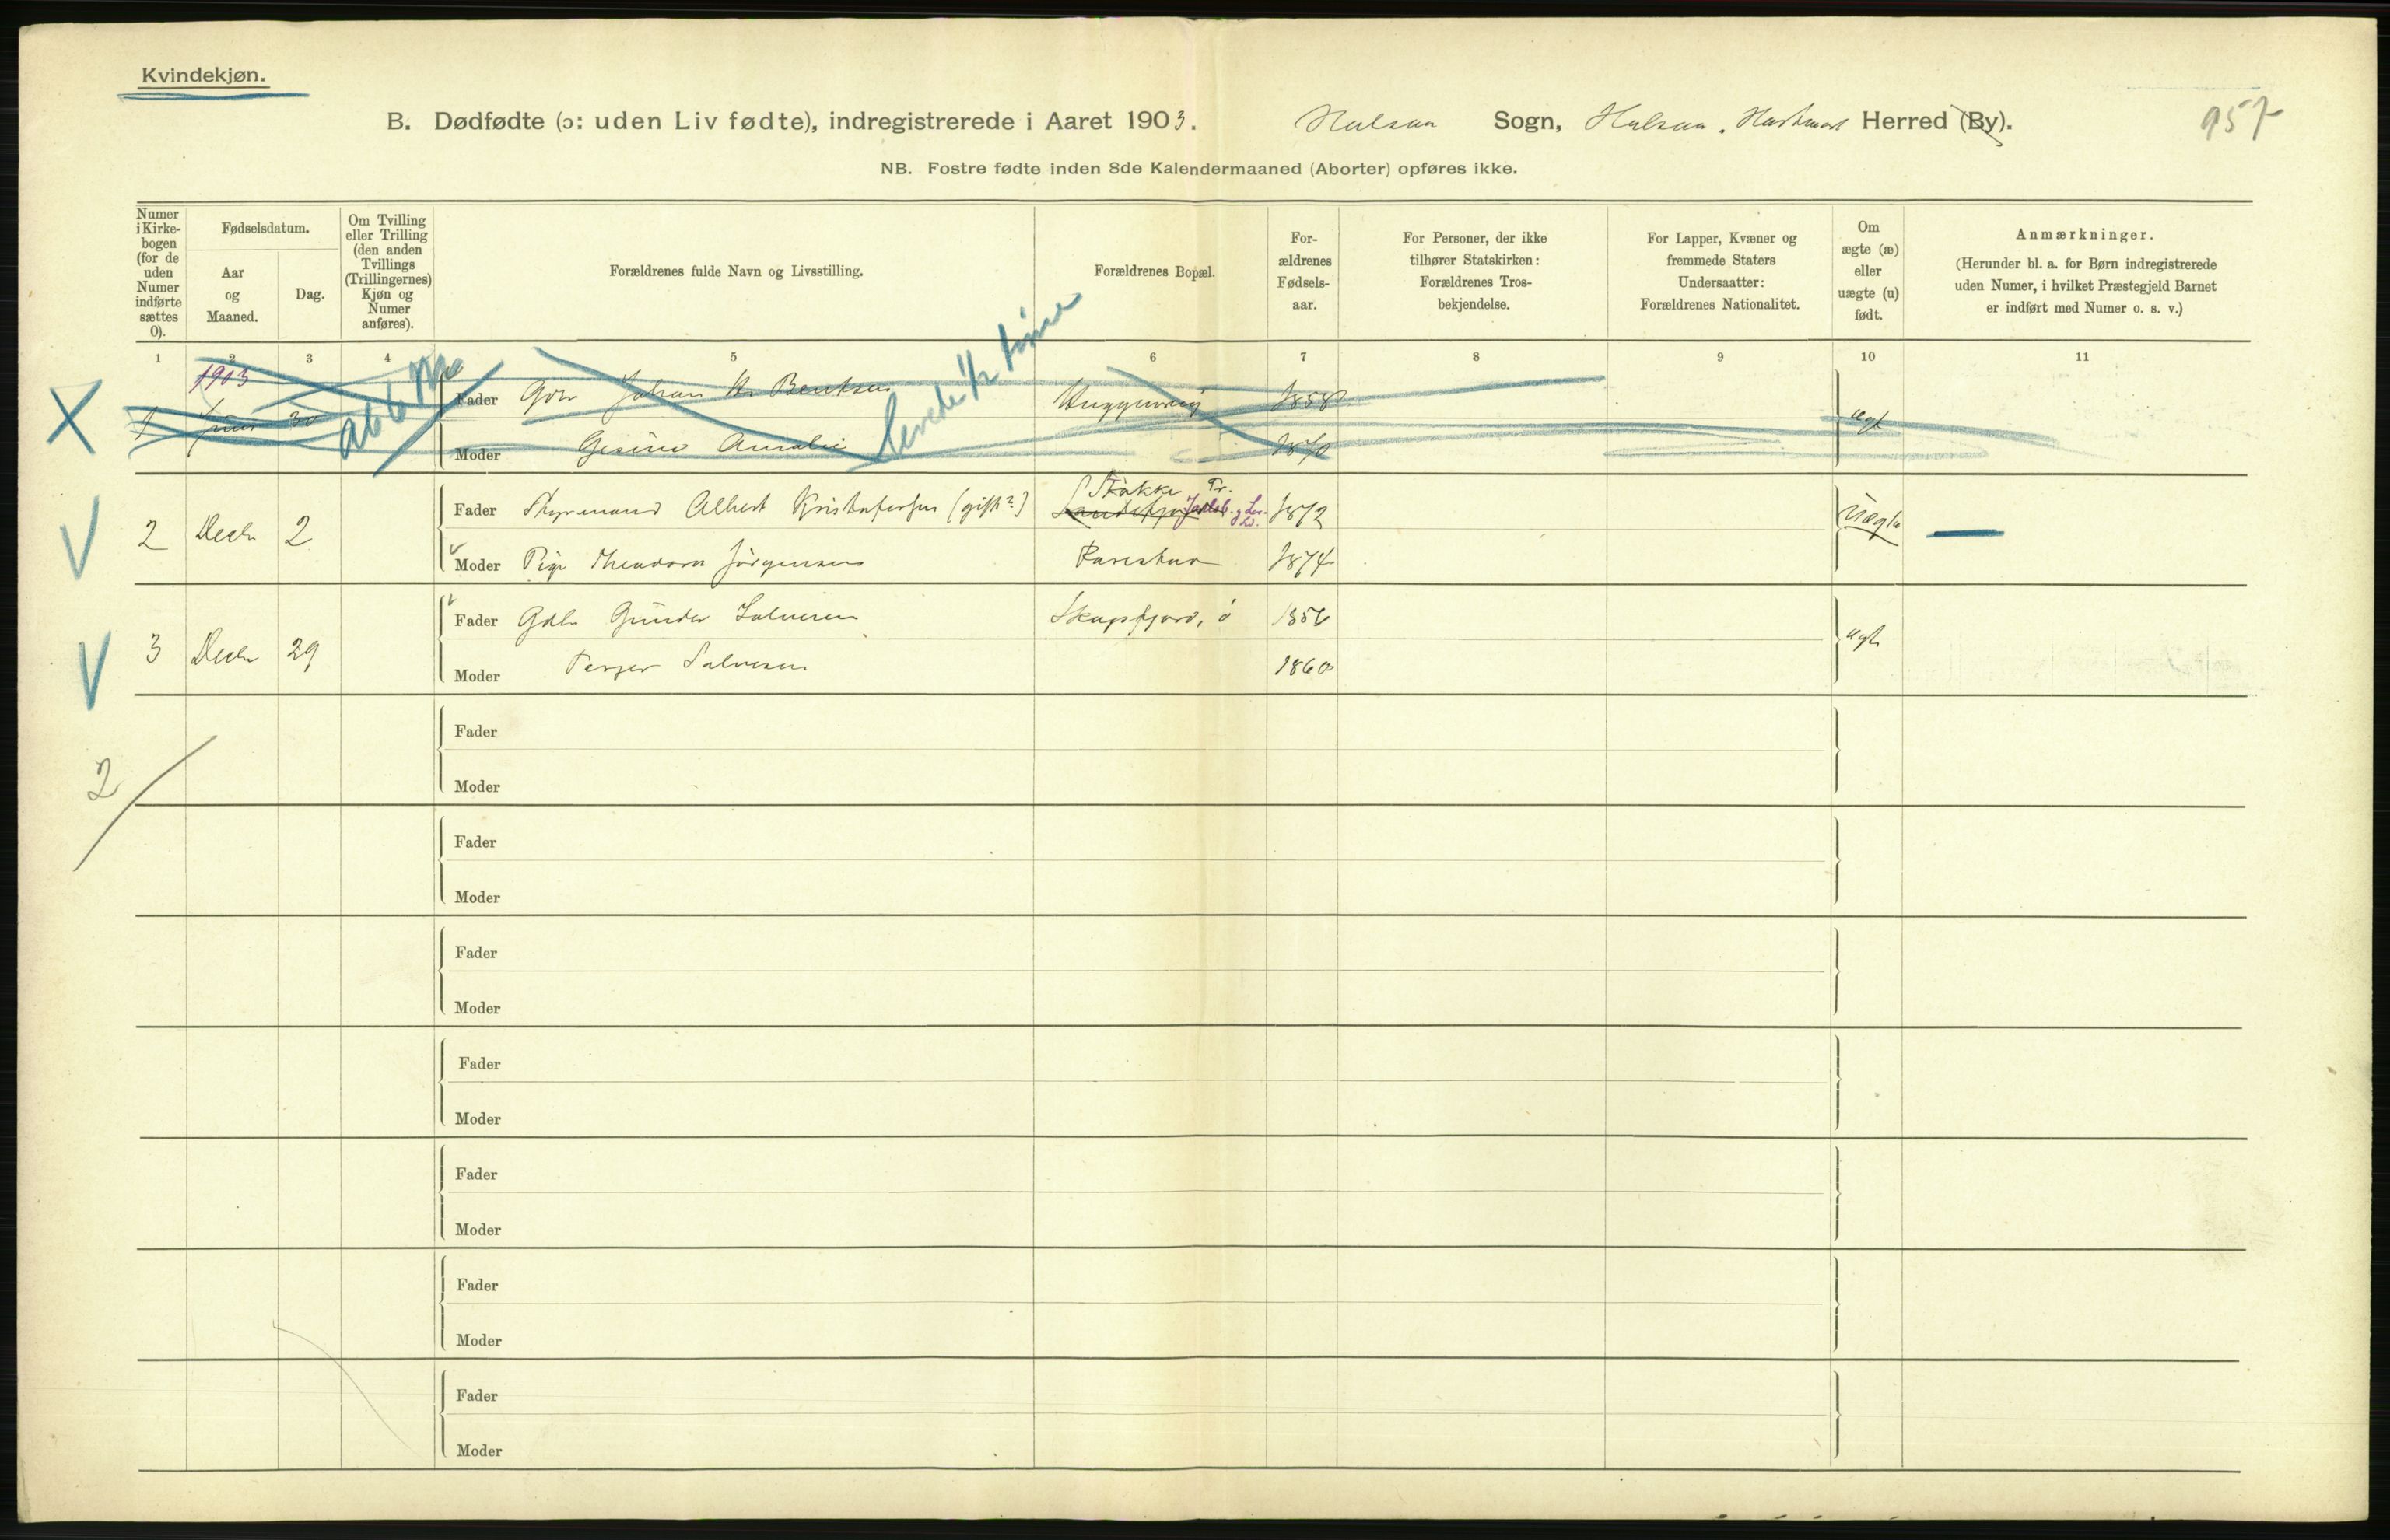 Kvindekjøn.
B. Dødfødte (ɔ: uden Liv fødte), indregistrerede i Aaret 1903. Halsaa Sogn, Halsaa. Hartmark Herred (By). 957
NB. Fostre fødte inden 8de Kalendermaaned (Aborter) opføres ikke.
Numer i Kirke-bogen (for de uden Numer indførte sættes 0).
Fødselsdatum.
Aar og Maaned.
Dag.
Om Tvilling eller Trilling (den anden Tvillings (Trillingernes) Kjøn og Numer anføres).
Forældrenes fulde Navn og Livsstilling.
Forældrenes Bopæl.
For-ældrenes Fødsels-aar.
For Personer, der ikke tilhører Statskirken: Forældrenes Tros-bekjendelse.
For Lapper, Kvæner og fremmede Staters Undersaatter: Forældrenes Nationalitet.
Om ægte (æ) eller uægte (u) født.
Anmærkninger.
(Herunder bl. a. for Børn indregistrerede uden Numer, i hvilket Præstegjeld Barnet er indført med Numer o. s. v.)
1 2 3 4 5 6 7 8 9 10 11
1903
levede 1/2 time
1 Juni 30 Fader Gbr Johan A. Bentsen 1858 ægte
Moder Gesine Amalie 1870
Stokke Pr.
2 Decbr 2 Fader Styrmand Albert Kristofersen (gift?) Sandefjord Jarlsb. 1872 Uægte
Moder Pige Theodora Jörgensen 1874
3 Decbr 29 Fader Gdbr Gunder Salvesen Skogsfjord, ö 1856 ægte
Moder Salvesen 1860
2
Fader
Moder
Fader
Moder
Fader
Moder
Fader
Moder
Fader
Moder
Fader
Moder
Fader
Moder